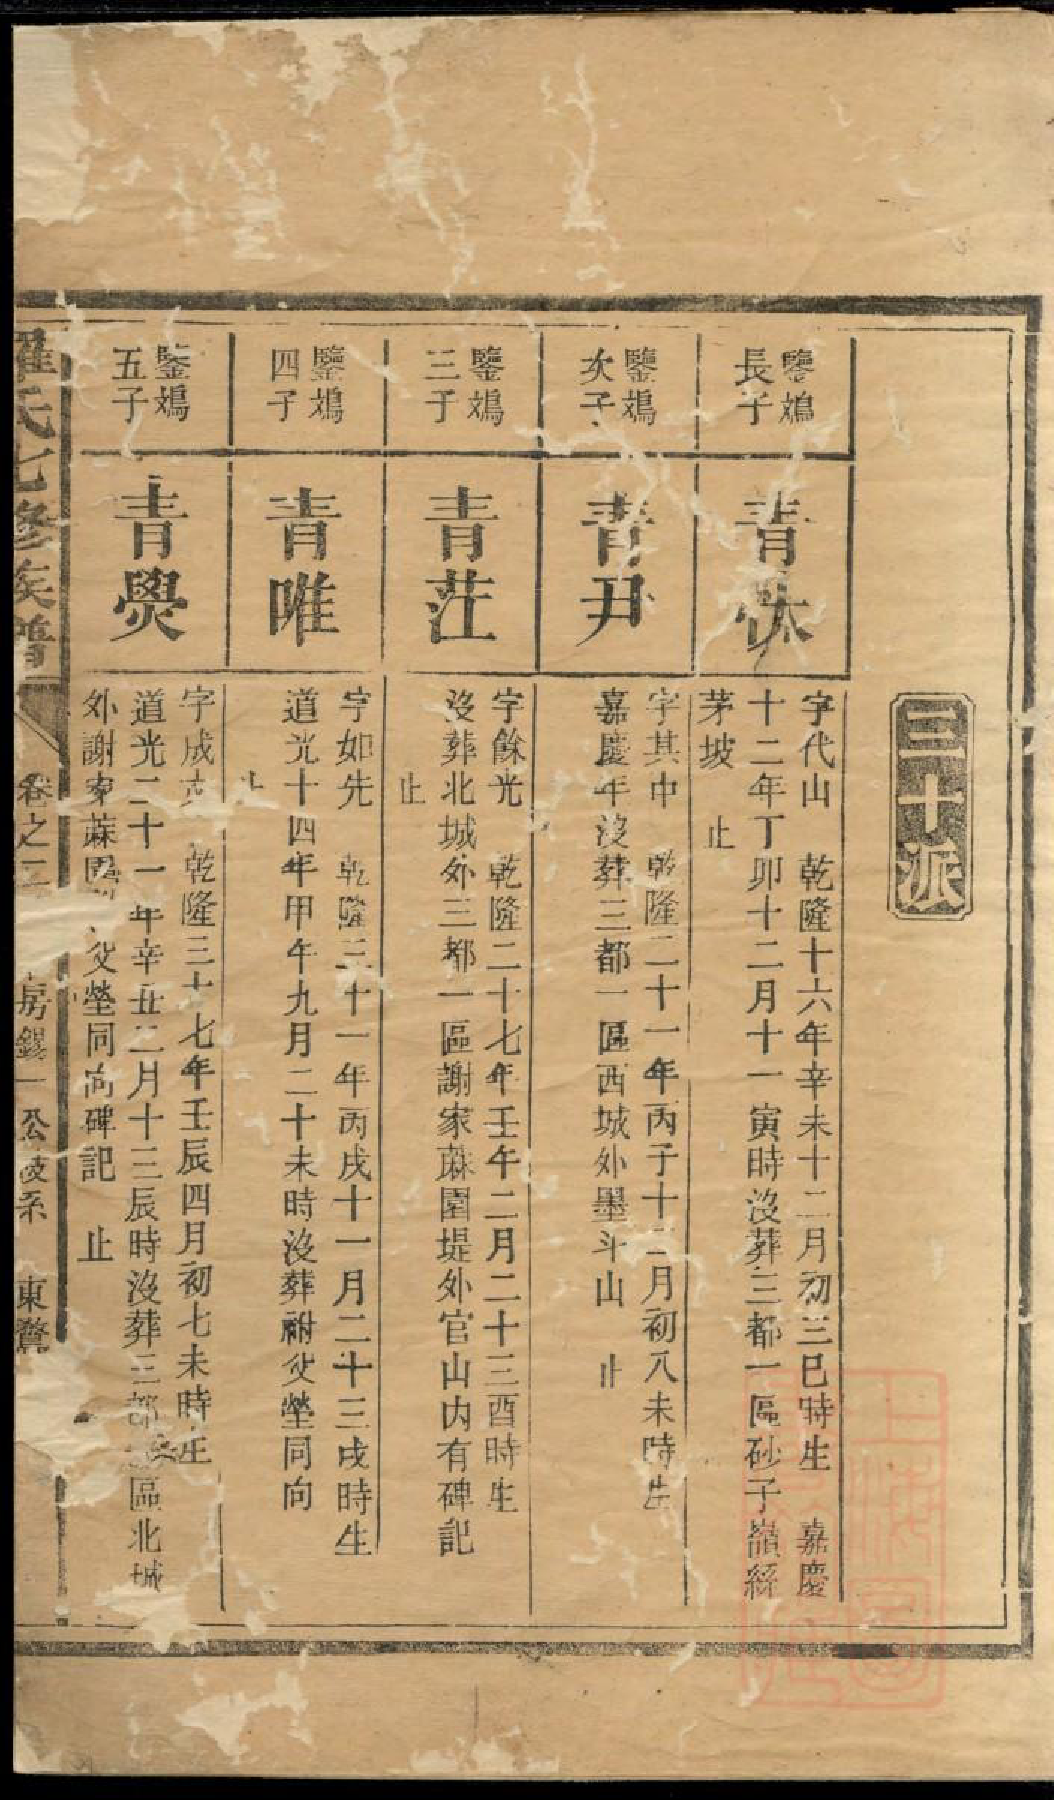 三十派
鑒鴆
長子
青怵
字代山 乾隆十六年辛未十二月初三巳時生 嘉慶
十二年丁卯十二月十一寅時沒葬三都一區砂子嶺絲
茅坡 止
鑒鴆
次子
青尹
字其中 乾隆二十一年丙子十二月初八未時生
嘉慶年沒葬三都一區西城外墨斗山 止
鑒鴆
三子
青茳
字餘光 乾隆二十七年壬午二月二十三酉時生
沒葬北城外三都一區謝家蔴園堤外官山內有碑記
止
鑒鴆
四子
青唯
字如先 乾隆三十一年丙戌十一月二十三戌時生
道光十四年甲午九月二十未時沒葬祔父塋同向
止
鑒鴆
五子
青爂
字成 乾隆三十七年壬辰四月初七未時生
道光二十一年辛丑二月十三辰時沒葬三都 區北城
外謝家蔴園 父塋同向碑記 止
羅氏七修族譜 卷之二 房 一公 系 東